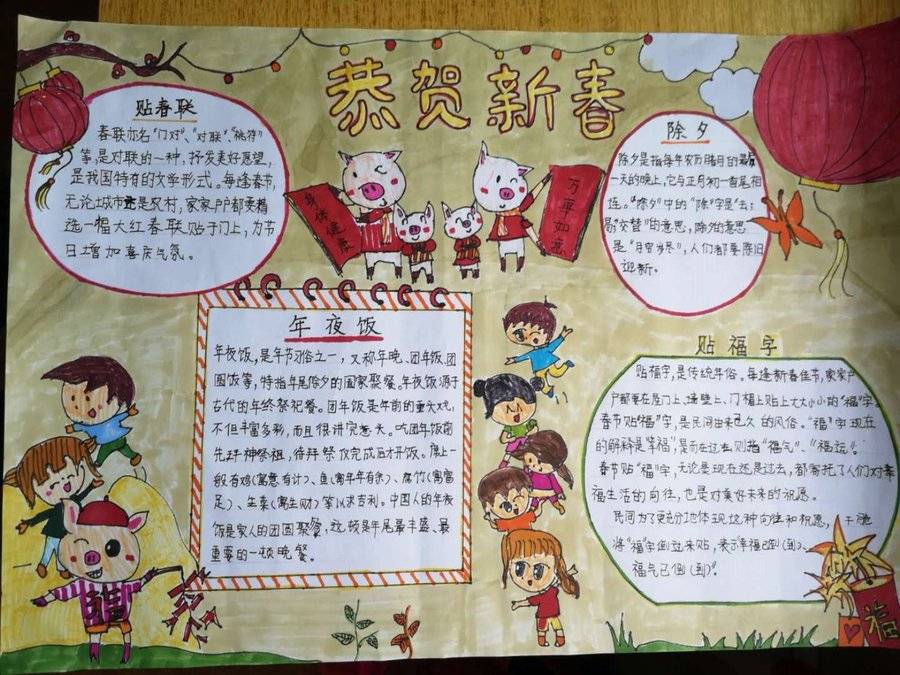 恭贺新春
贴春联
春联亦名“门对”、“对联”、“桃符”
等,是对联的一种,抒发美好愿望,
是我国特有的文学形式。每逢春节,
无论城市还是农村,家家户户都要精
选一幅大红春联贴于门上,为节
日增加喜庆气氛。
身体健康
万事如意
除夕
除夕是指每年农历腊月的最
一天的晚上,它与正月初一首尾相
连。“除夕”中的“除”字是“去;
易;交替”的意思,除夕的意思
是“月穷岁尽”,人们都要除旧
迎新。
年夜饭
年夜饭,是年节习俗之一,又称年晚、团年饭、团
圆饭等,特指年尾除夕的聚餐。年夜饭源于
古代的年终祭祀餐。团年饭是年前的重头戏,
不但丰富多彩,而且很讲究意头。吃团年饭前
先拜神祭祖,待拜祭仪完成后才开饭。席上一
般有鸡(寓意有计)、鱼(寓年年有余)、腐竹(寓富
足)、生菜(寓生财)等以求吉利。中国人的年夜
饭是家人的团圆聚餐,这顿是年尾最丰盛、最
重要的一顿晚餐。
贴福字
贴福字,是传统年俗。每逢新春佳节,家家户
户都要在屋门上、墙壁上、门楣上贴上大大小小的“福”字。
春节贴“福”字,是民间由来已久的风俗。“福”字现在
的解释是“幸福”,是而在过去则指“福气”、“福运”。
春节贴“福”字,无论是现在还是过去,都寄托了人们对幸
福生活的向往,也是对美好未来的祝愿。
民间为了更充分地体现这种向往和祝愿,干脆
将“福”字倒过来贴,表示“幸福已倒(到)、
福气已倒(到)”。
福